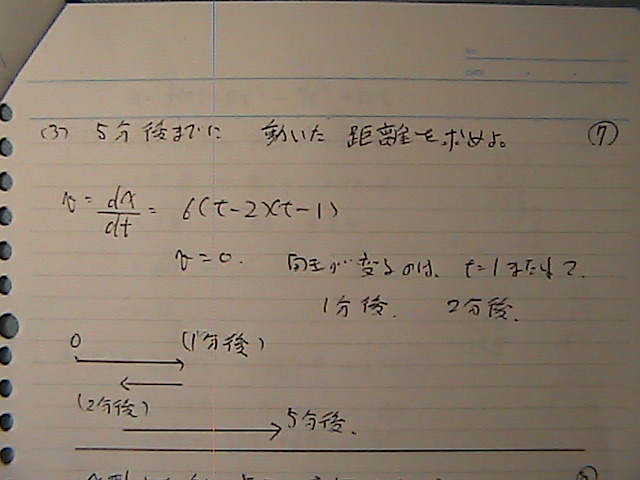 No.
DATE
(3) 5分後までに 動いた 距離を求めよ。 ⑦
v = dx/dt = 6(t-2)(t-1)
v=0. 向きが変るのは、t=1または2.
1分後. 2分後.
0 (1分後)
(2分後)
5分後.